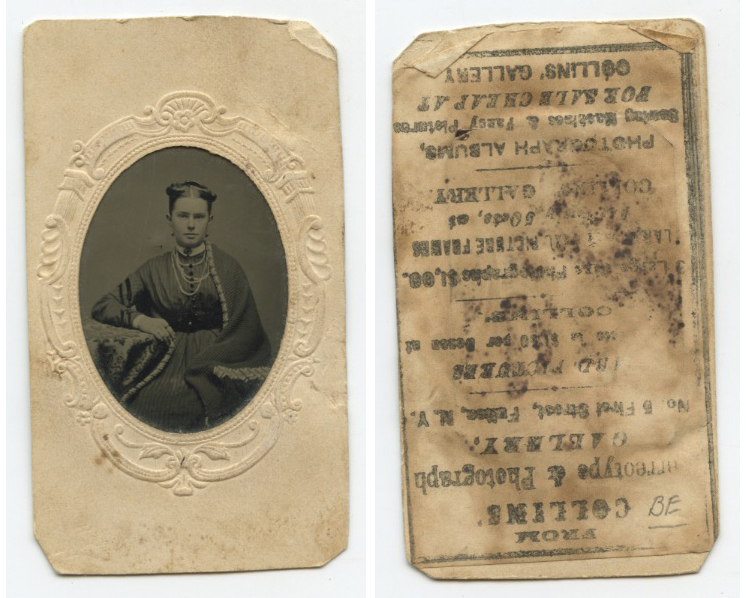 FROM
COLLINS'
& Photograph
GALLERY,
No. 5 First Street, Fulton, N. Y.
PICTURES
per Dozen at
COLLINS'
Photographs $1.00.
PICTURE FRAMES
50cts, at
COLLINS' GALLERY
PHOTOGRAPH ALBUMS,
Sewing Machines & Fancy Pictures
FOR SALE CHEAP AT
COLLINS' GALLERY
BE